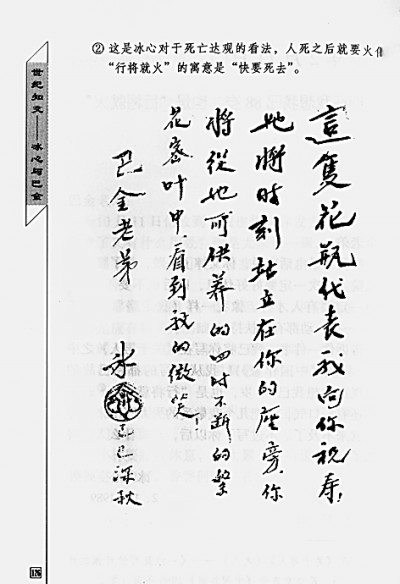 ② 这是冰心对于死亡达观的看法，人死之后就要火
“行将就火”的寓意是“快要死去”。
世纪知交——冰心与巴金
這隻花瓶代表我向你祝寿！
她將时刻站立在你的座旁，你
將從她可供养的四时不断的繁
花密叶中，看到我的微笑！
巴金老弟
冰
己巳深秋